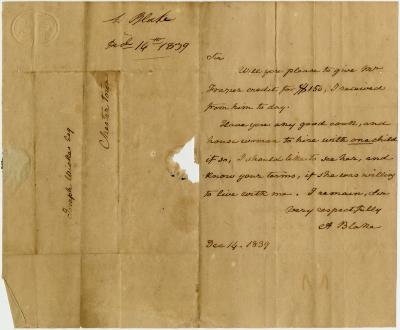 A. Blake
Dec 14th 1839
Joseph Wickes Esq
Chester town
Sir
Will you please to give Mr
Frazer credit for $150, I received
from him to day.
Have you any good cook, and
house woman to hire with one child
if so, I should like to see her, and
know your terms, if she was willing
to live with me. I remain, Sir
very respectfully
A Blake
Dec 14. 1839